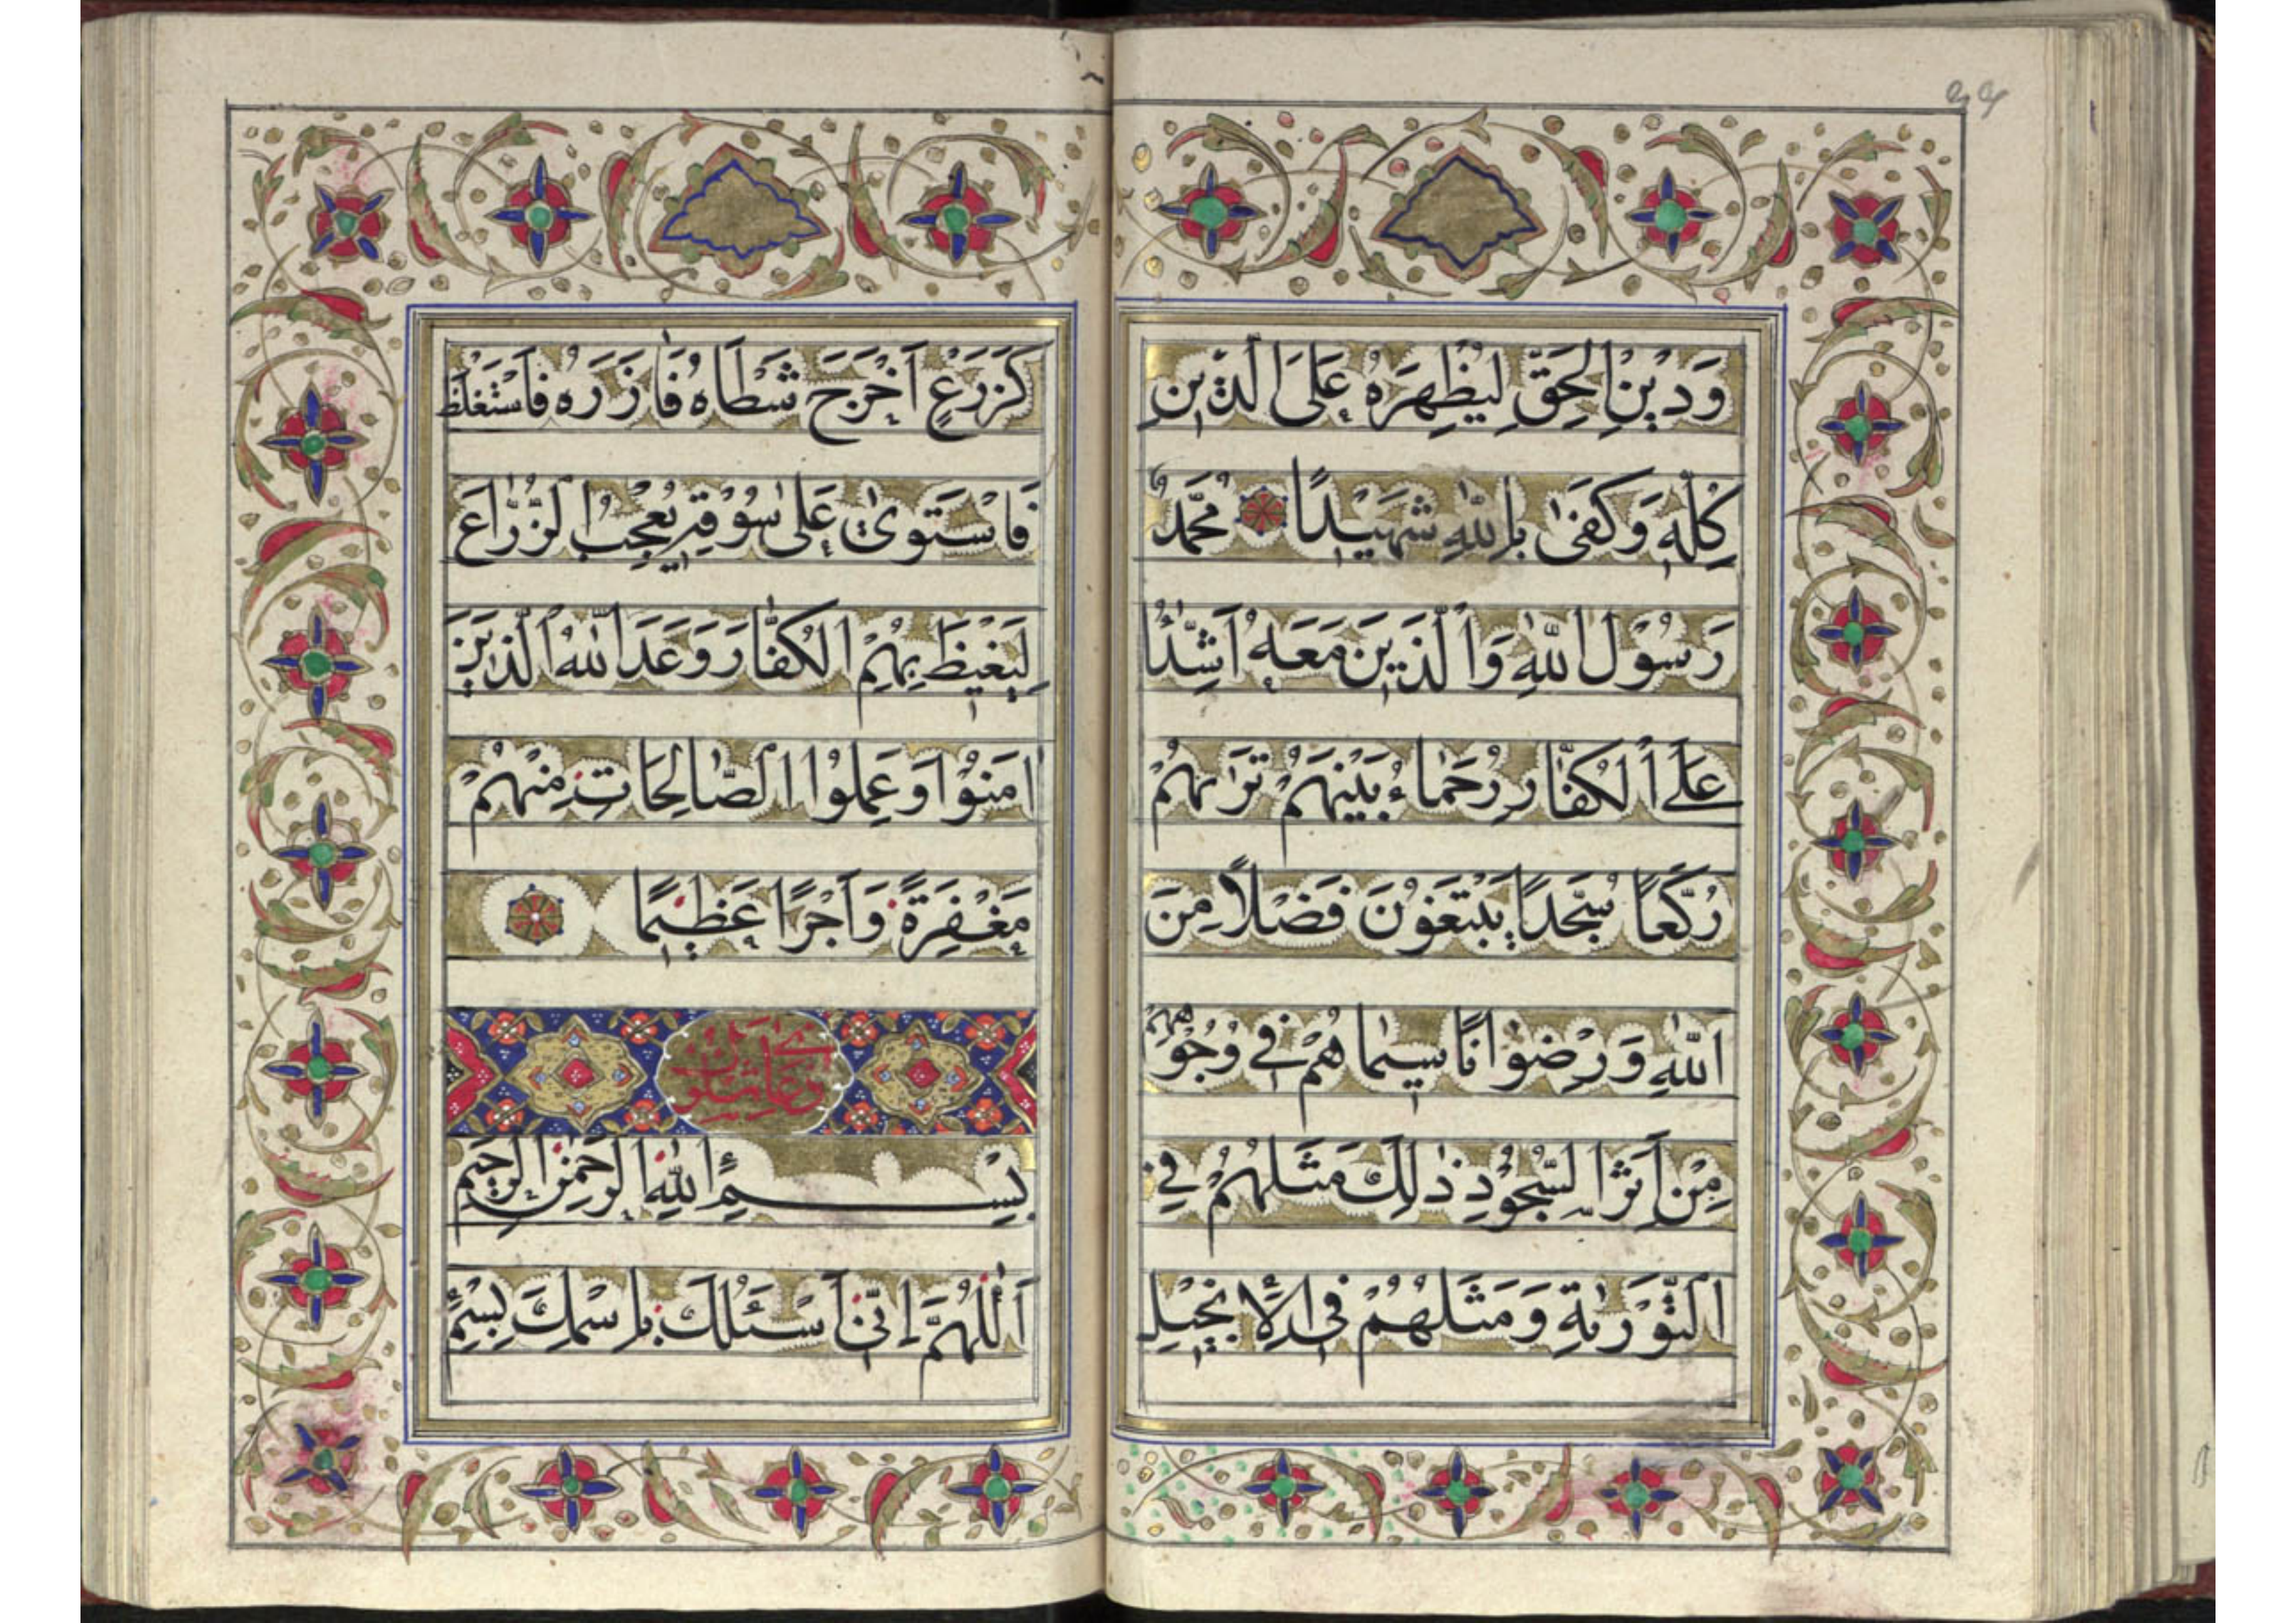 وَدِيْنِ الْحَقِّ لِيُظْهِرَهُ عَلَى الَّذِيْنِ
كُلِّهِ وَكَفَىٰ بِاللّٰهِ شَهِيْدًا مُحَمَّدٌ
رَسُوْلُ اللّٰهِ وَالَّذِيْنَ مَعَهُ اَشِدّٰٓاُ
عَلَى الْكُفّٰارِ رُحَمٰاءُ بَيْنَهُمْ تَرٰىهُمْ
رُكَّعاً سُجَّداً يَبْتَغُوْنَ فَضْلاً مِنَ
اللّٰهِ وَرِضْوٰانًا سِيمٰاهُمْ فِي وُجُوْهِهِمْ
مِنْ اَثَرِ السُّجُوْدِ ذٰلِكَ مَثَلُهُمْ فِي
التَّوْرٰيةِ وَمَثَلُهُمْ فِي الْاِنْجِيْلِ
كَزَرْعٍ اَخْرَجَ شَطْاَهُ فَاٰزَرَهُ فَاسْتَغْلَظَ
فَاسْتَوىٰ عَلىٰ سُوْقِهِ يُعْجِبُ الزُّرّٰاعَ
لِيَغِيْظَ بِهِمُ الْكُفّٰارَ وَعَدَ اللّٰهُ الَّذِيْنَ
اٰمَنُوْا وَعَمِلُوْا الصّٰالِحَاتِ مِنْهُمْ
مَغْفِرَةً وَاَجْرًا عَظِيْمًا
بِسْمِ اللّٰهِ الرَّحْمٰنِ الرَّحِيْمِ
اَللّٰهُمَّ اِنِّي اَسْئَلُكَ بِاسْمِكَ بِسْمِ